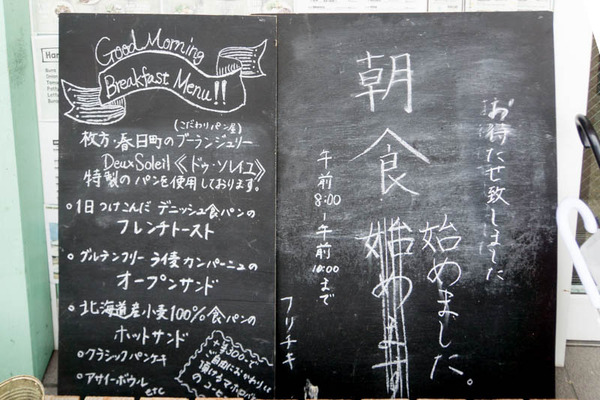 Good Morning
Breakfast Menu!!
(こだわりパン屋)
枚方・春日町のブーランジュリー
Deux Soleil《ドゥ・ソレイユ》
特製のパンを使用しております。
○1日つけこんだ デニッシュ食パンの
フレンチトースト
○グルテンフリー ライ麦カンパーニュの
オープンサンド
○北海道産小麦100%食パンの
ホットサンド
○クラシックパンケーキ
○アサイーボウル
etc
+¥300-で
ご自由におかわり
頂ける
のコーヒー
お待たせ致しました
朝食
始めました。
始めます
午前8:00〜午前10:00まで
フリチキ